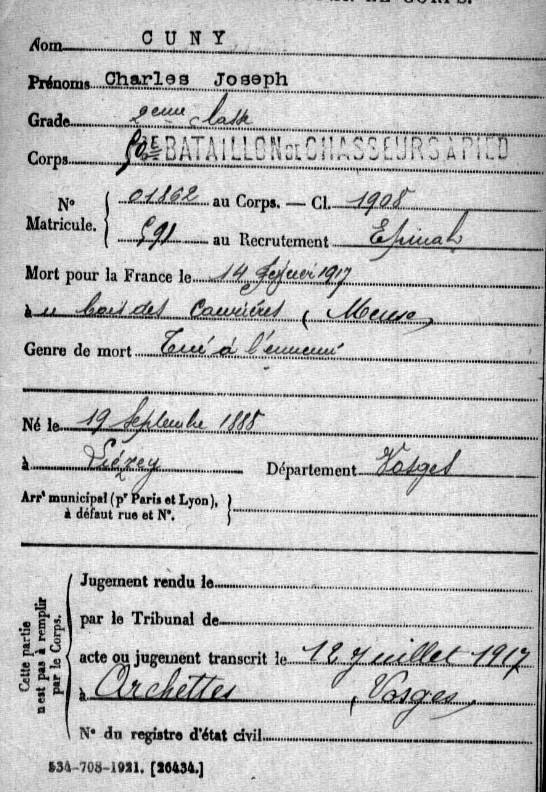 Nom CUNY
Prénoms Charles Joseph
Grade 2eme classe
Corps BATAILLON DE CHASSEURS A PIED
N° Matricule. { 01862 au Corps. — Cl. 1908
591 au Recrutement Epinal
Mort pour la France le 14 1917
à u bois des Caurières (Meuse)
Genre de mort Tué à l'ennemi
Né le 19 Septembre 1888
à Liézey Département Vosges
Arrt municipal (pr Paris et Lyon), à défaut rue et N°. }
Cette partie n'est pas à remplir par le Corps. {
Jugement rendu le
par le Tribunal de
acte ou jugement transcrit le 12 Juillet 1917
à Archettes (Vosges)
N° du registre d'état civil
534-708-1921. [26434.]